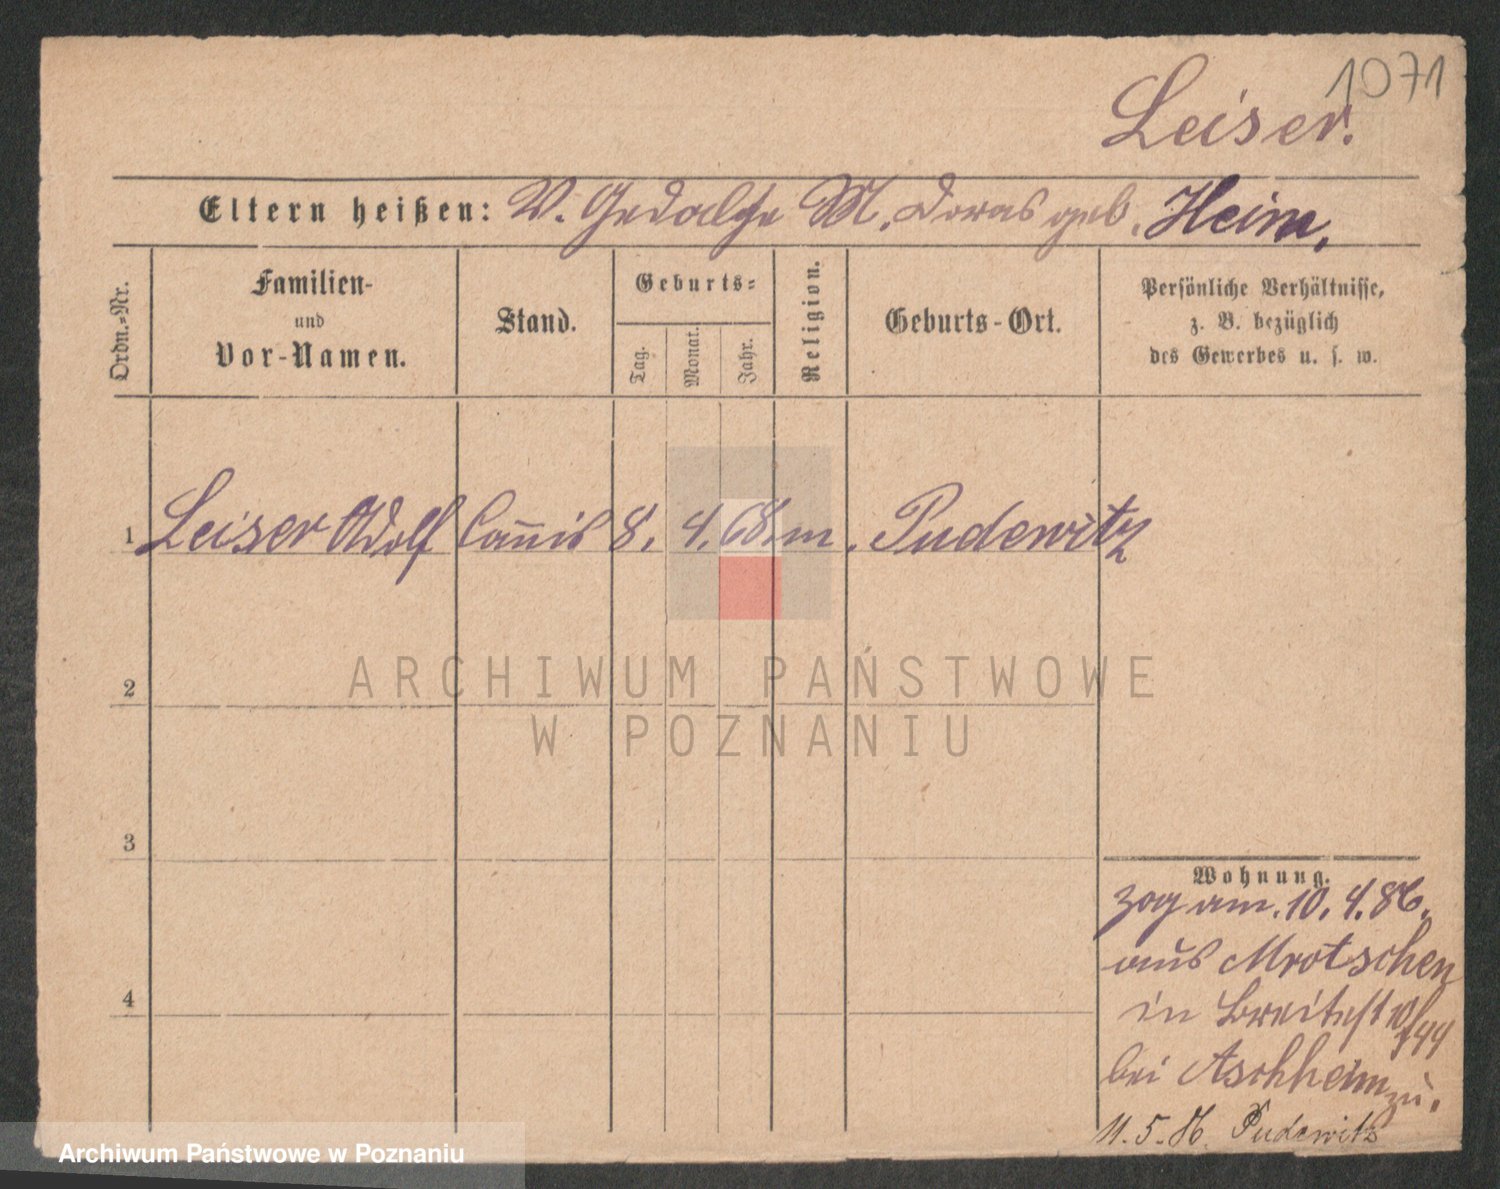 1071
Leiser.
Eltern heißen: V. Gedalje M. Doras geb. Heim.
Ordn.=Nr.
Familien-
und
Vor-Namen.
Stand.
Geburts=
Tag.
Monat.
Jahr.
Religion.
Geburts-Ort.
Persönliche Verhältnisse,
z. B. bezüglich
des Gewerbes u. s. w.
1 Leiser Adolf Com̅is 8. 4. 68. m. Pudewitz
2
3
4
Wohnung.
zog am 10. 4. 86.
aus Mrotschen
in Breitestr
bei Aschheim zu.
11. 5. 86. Pudewitz
ARCHIWUM PAŃSTWOWE
W POZNANIU
Archiwum Państwowe w Poznaniu